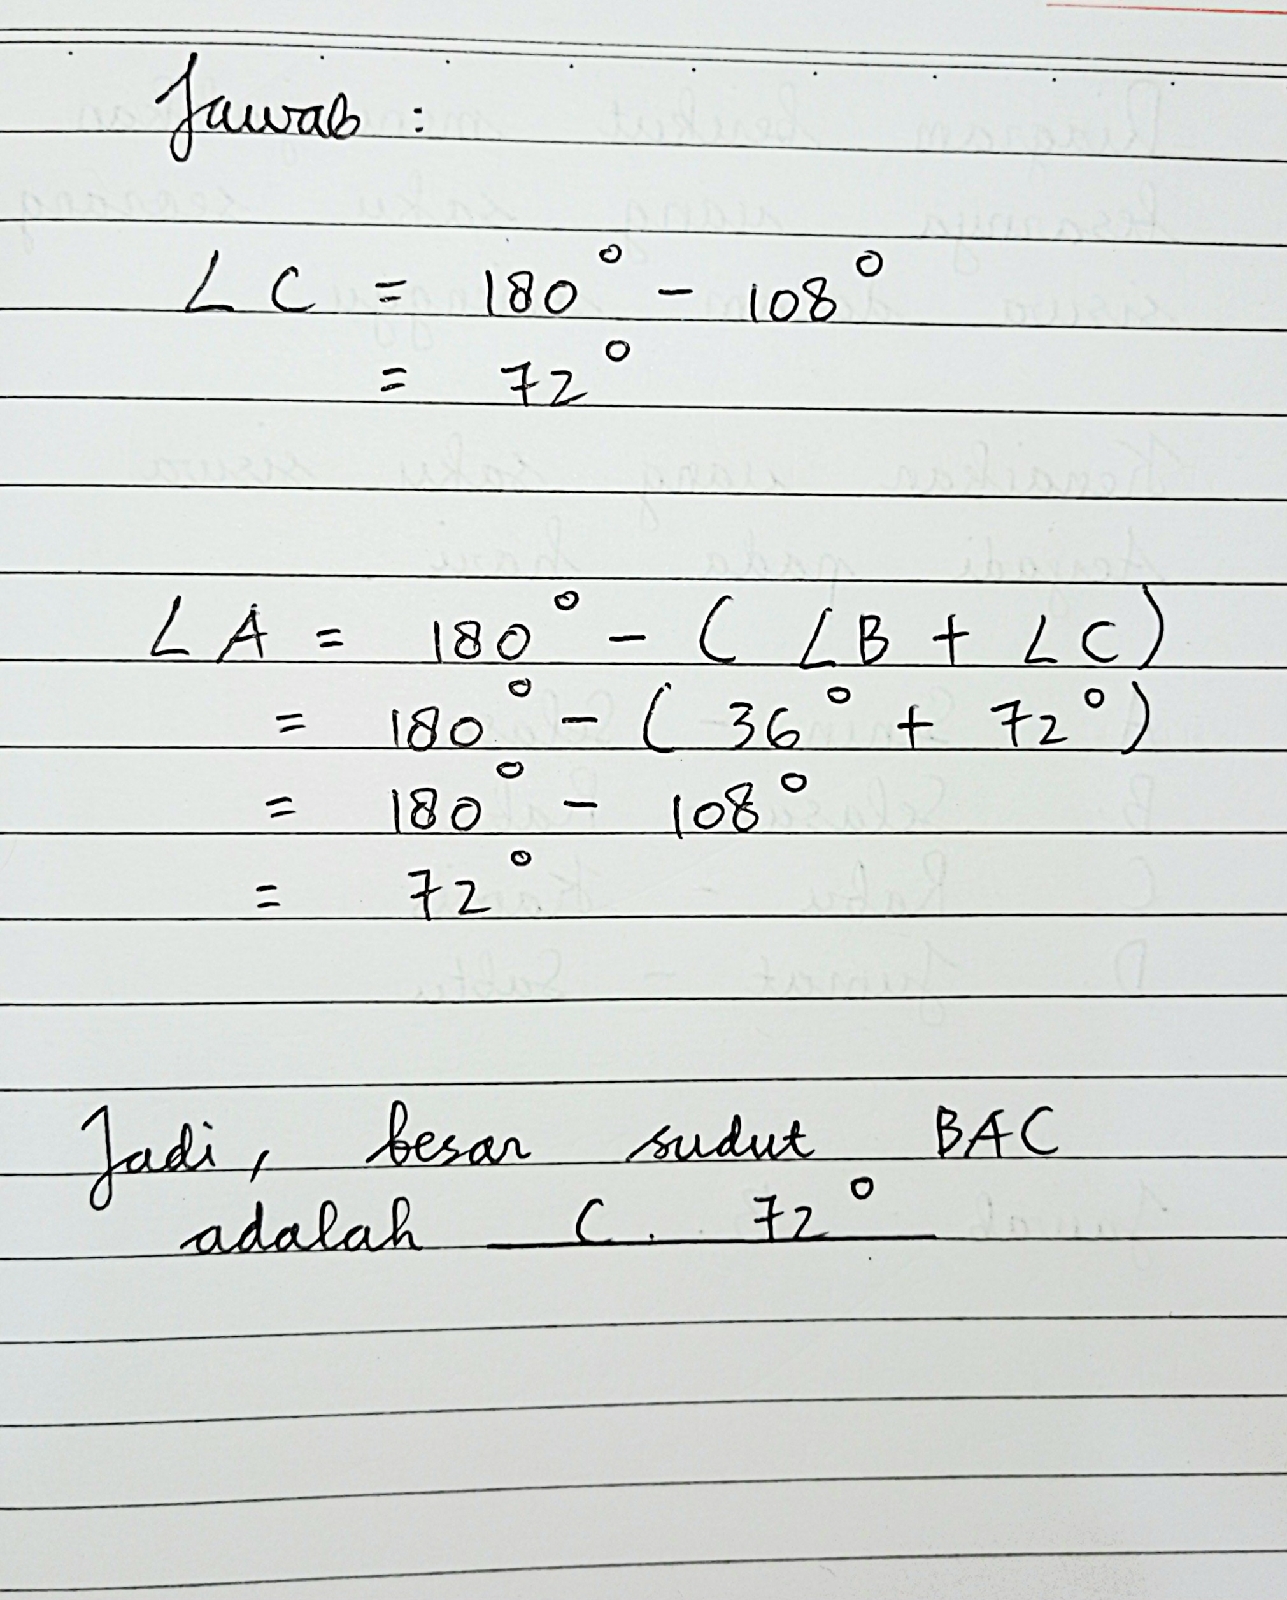 Jawab :
∠ C = 180° - 108°
= 72°
∠ A = 180° - ( ∠B + ∠C )
= 180° - ( 36° + 72° )
= 180° - 108°
= 72°
Jadi, besar sudut BAC
adalah C. 72°